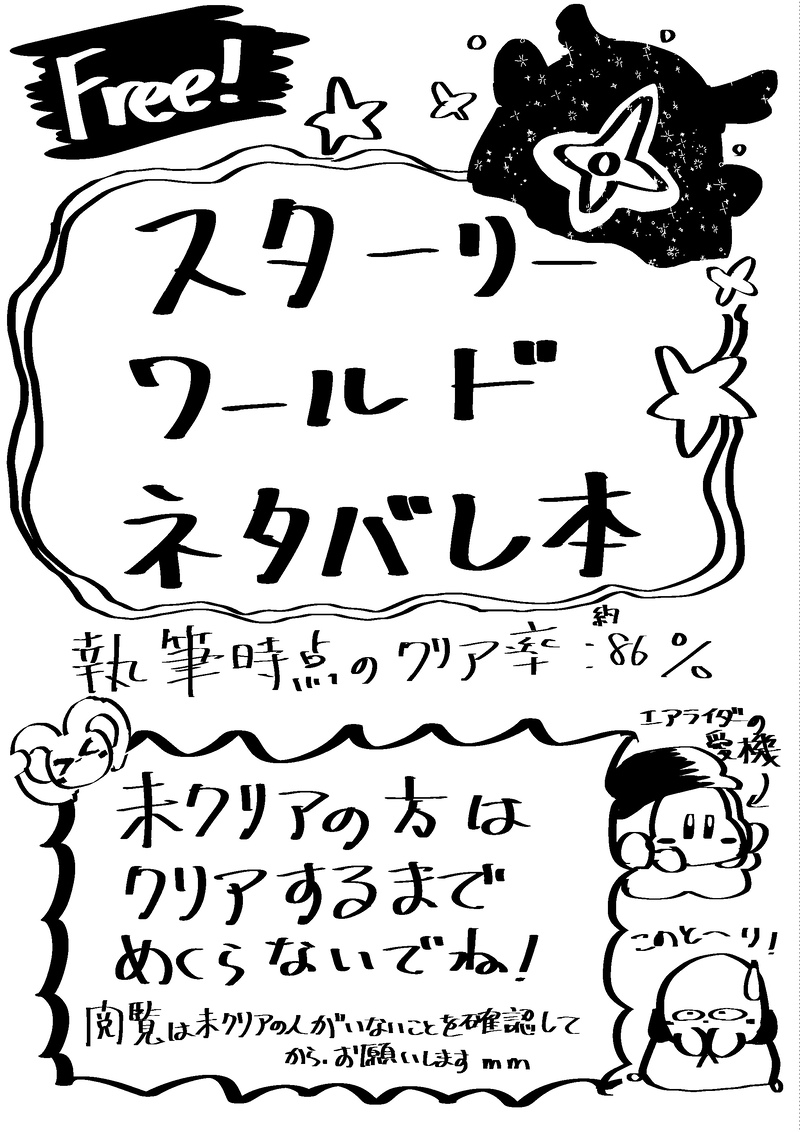 Free!
スターリー
ワールド
ネタバレ本
執筆時点のクリア率:約86%
エアライダーの
愛機
未クリアの方は
クリアするまで
めくらないでね!
このとーり!
閲覧は未クリアの人がいないことを確認して
から、お願いしますmm